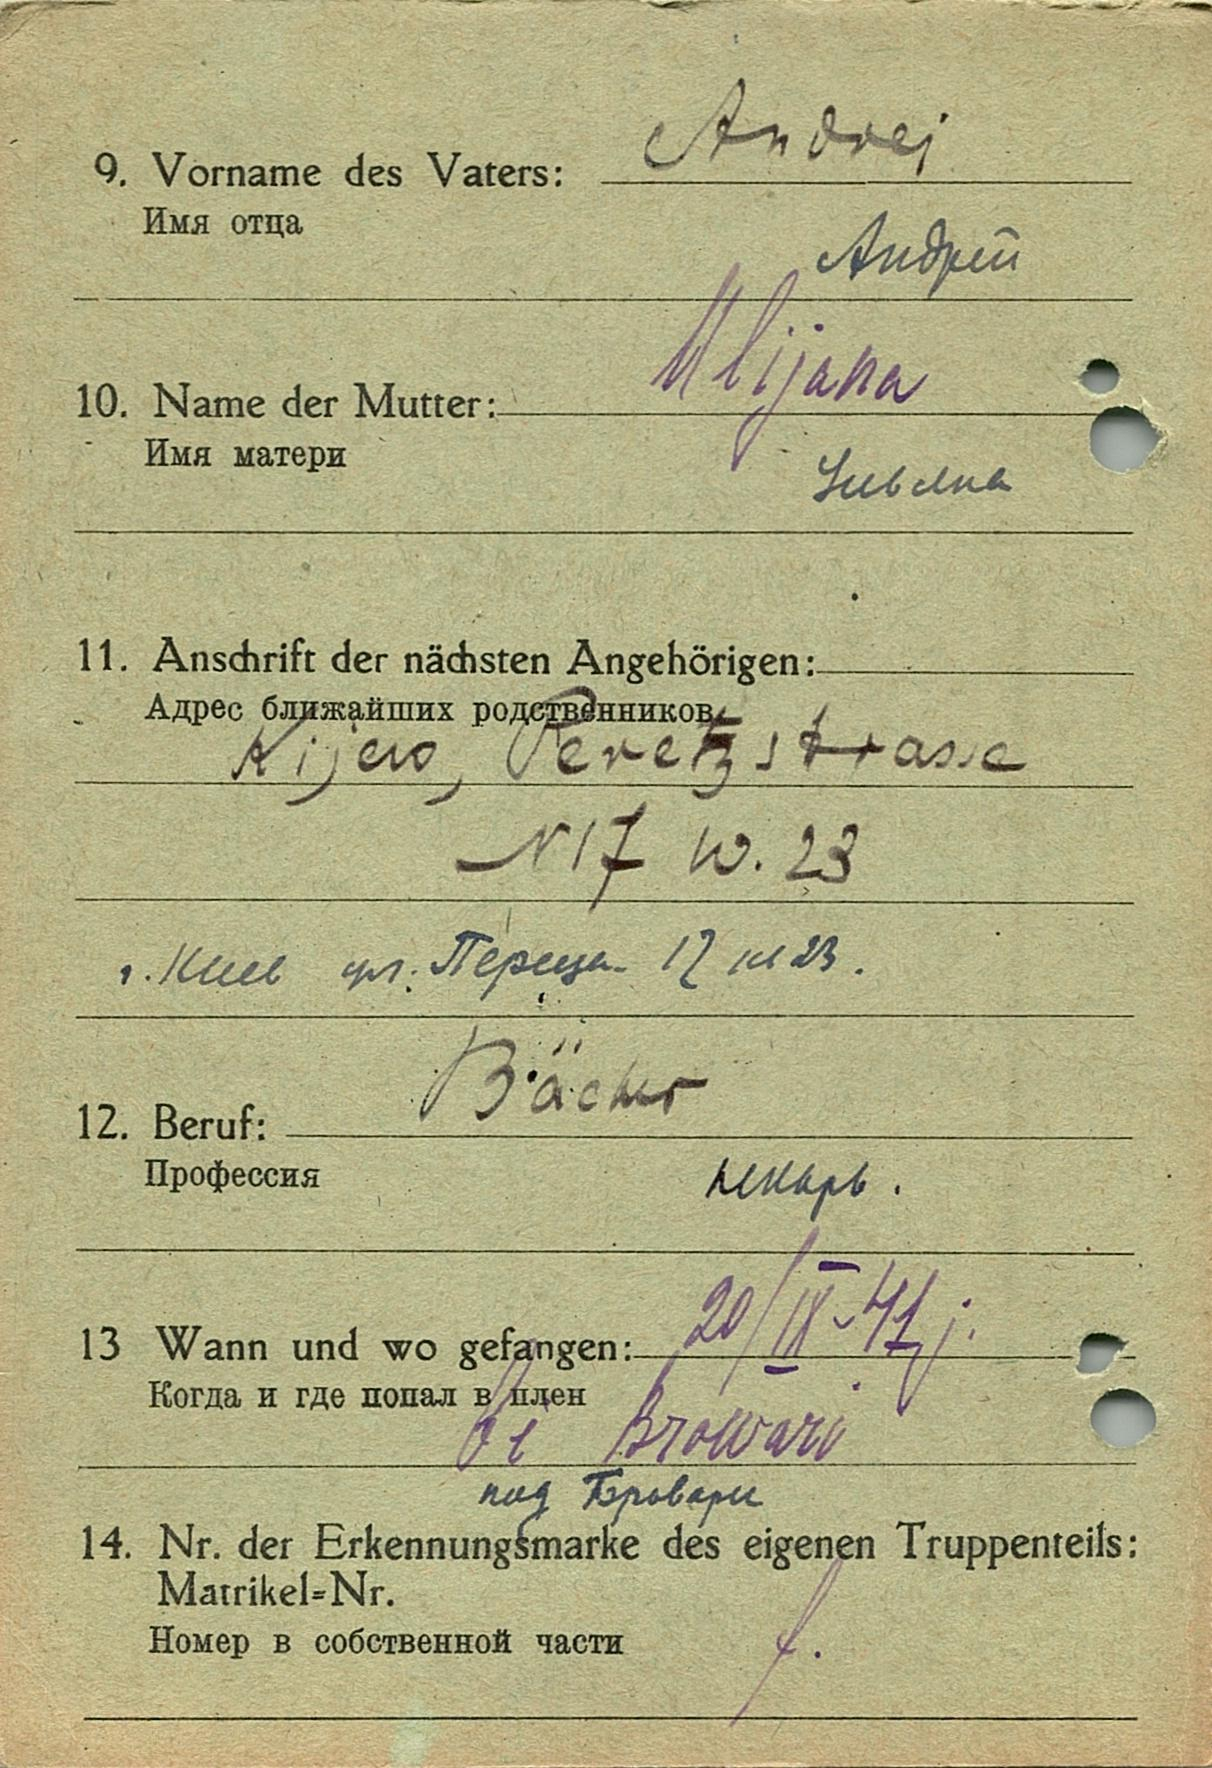 9. Vorname des Vaters: Andrej
Имя отца
Андрей
10. Name der Mutter: Ulijana
Имя матери
11. Anschrift der nächsten Angehörigen:
Адрес ближайших родственников
Kijew, Peretzstrasse
N 17 w. 23
г. Киев ул. Переца 17 кв 23.
12. Beruf: Bäcker
Профессия
пекарь.
13 Wann und wo gefangen: 20/IX-41 j.
Когда и где попал в плен
Browari
под Бровари
14. Nr. der Erkennungsmarke des eigenen Truppenteils:
Matrikel=Nr.
Номер в собственной части